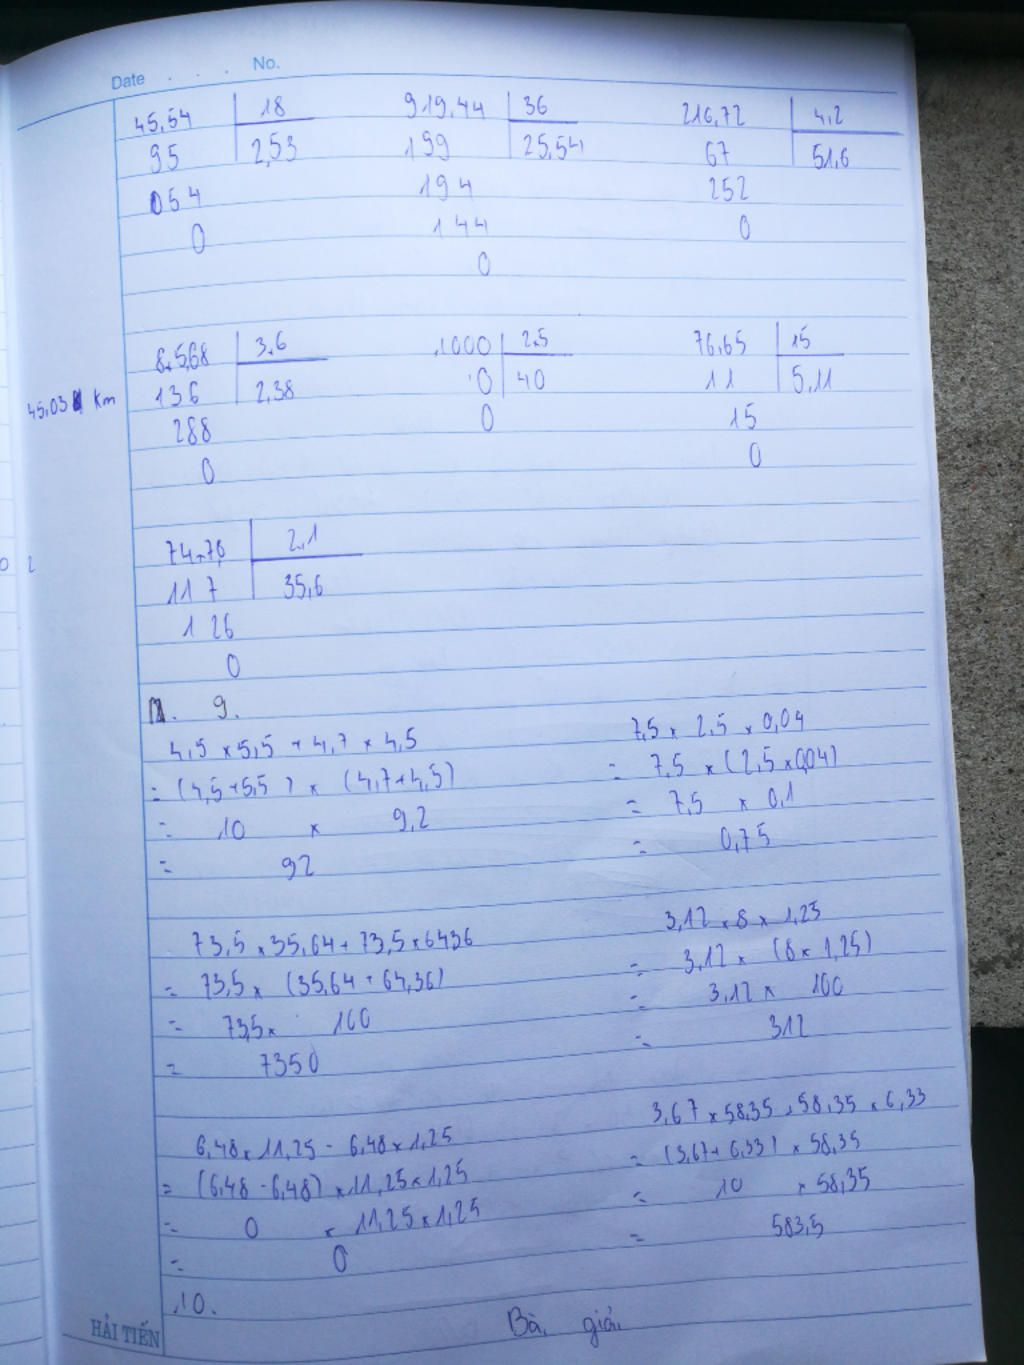 Date . . . No.
45,54 18 919,44 36 216,72 4,2
95 2,53 199 25,54 67 51,6
054 194 252
0 144 0
0
8,5,68 3,6 1000 2,5 76,65 15
136 2,38 0 40 11 5,11
45,03 km
288 0 15
0 0
74,7,6 2,1
117 35,6
126
0
9.
4,5 × 5,5 + 4,7 × 4,5 7,5 × 2,5 × 0,04
= (4,5 + 5,5) × (4,7 + 4,5) = 7,5 × (2,5 × 0,04)
= 10 × 9,2 = 7,5 × 0,1
= 92 = 0,75
73,5 × 35,64 + 73,5 × 6436 3,12 × 8 × 1,25
= 73,5 × (35,64 + 64,36) = 3,12 × (8 × 1,25)
= 73,5 × 100 = 3,12 × 100
= 7350 = 312
6,48 × 11,25 - 6,48 × 1,25 3,67 × 58,35 + 58,35 × 6,33
= (6,48 - 6,48) × 11,25 × 1,25 = (3,67 + 6,33) × 58,35
= 0 × 11,25 × 1,25 = 10 × 58,35
= 0 = 583,5
10.
Bài giải
HẢI TIẾN